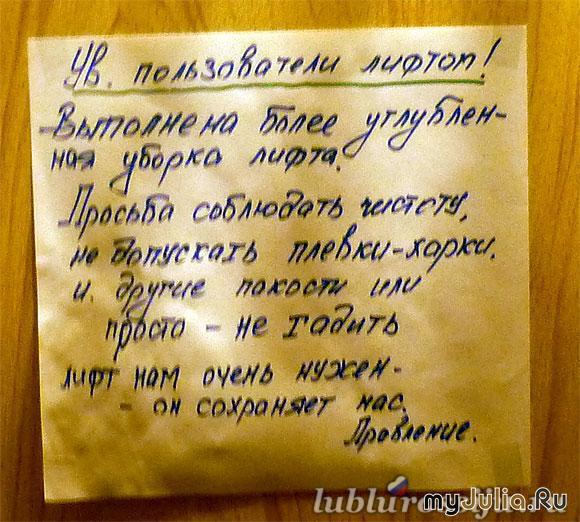 Ув. пользователи лифтом!
-Выполнена более углублен-
ная уборка лифта.
Просьба соблюдать чистоту,
не допускать плевки-харки.
и другие пакости или
просто - не гадить
лифт нам очень нужен-
- он сохраняет нас.
Правление.
myJulia.Ru